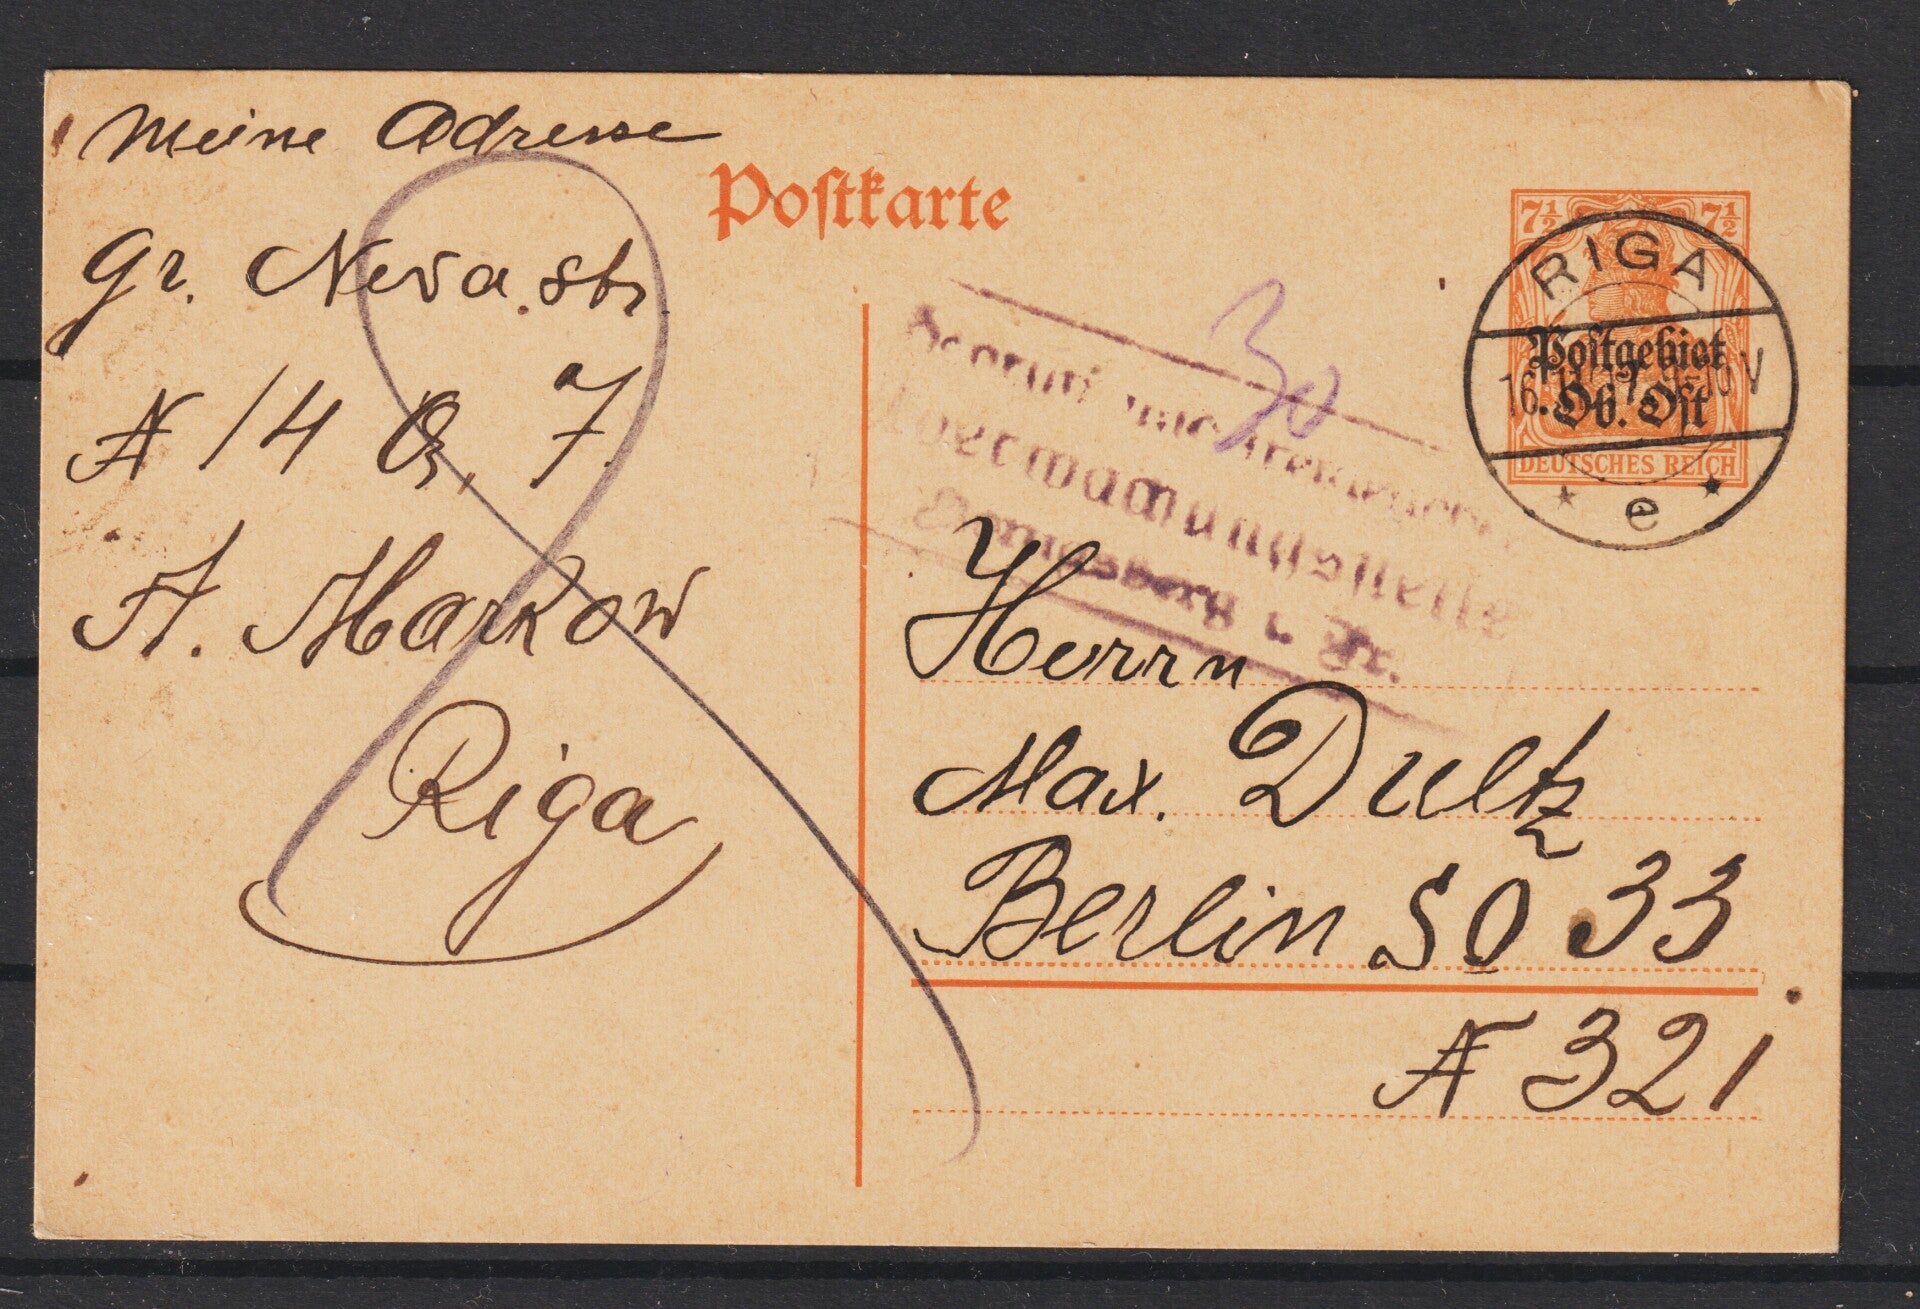 Meine Adresse
gr. Neva. str.
№ 14 Q, 7.
A. Markow
Riga
Postkarte
30
7½ 7½
DEUTSCHES REICH
Postgebiet
Ob. Ost
RIGA
16.
V
* e *
Postüberwachungsstelle
Königsberg i. Pr.
Herrn
Max. Dultz
Berlin SO 33
№ 321